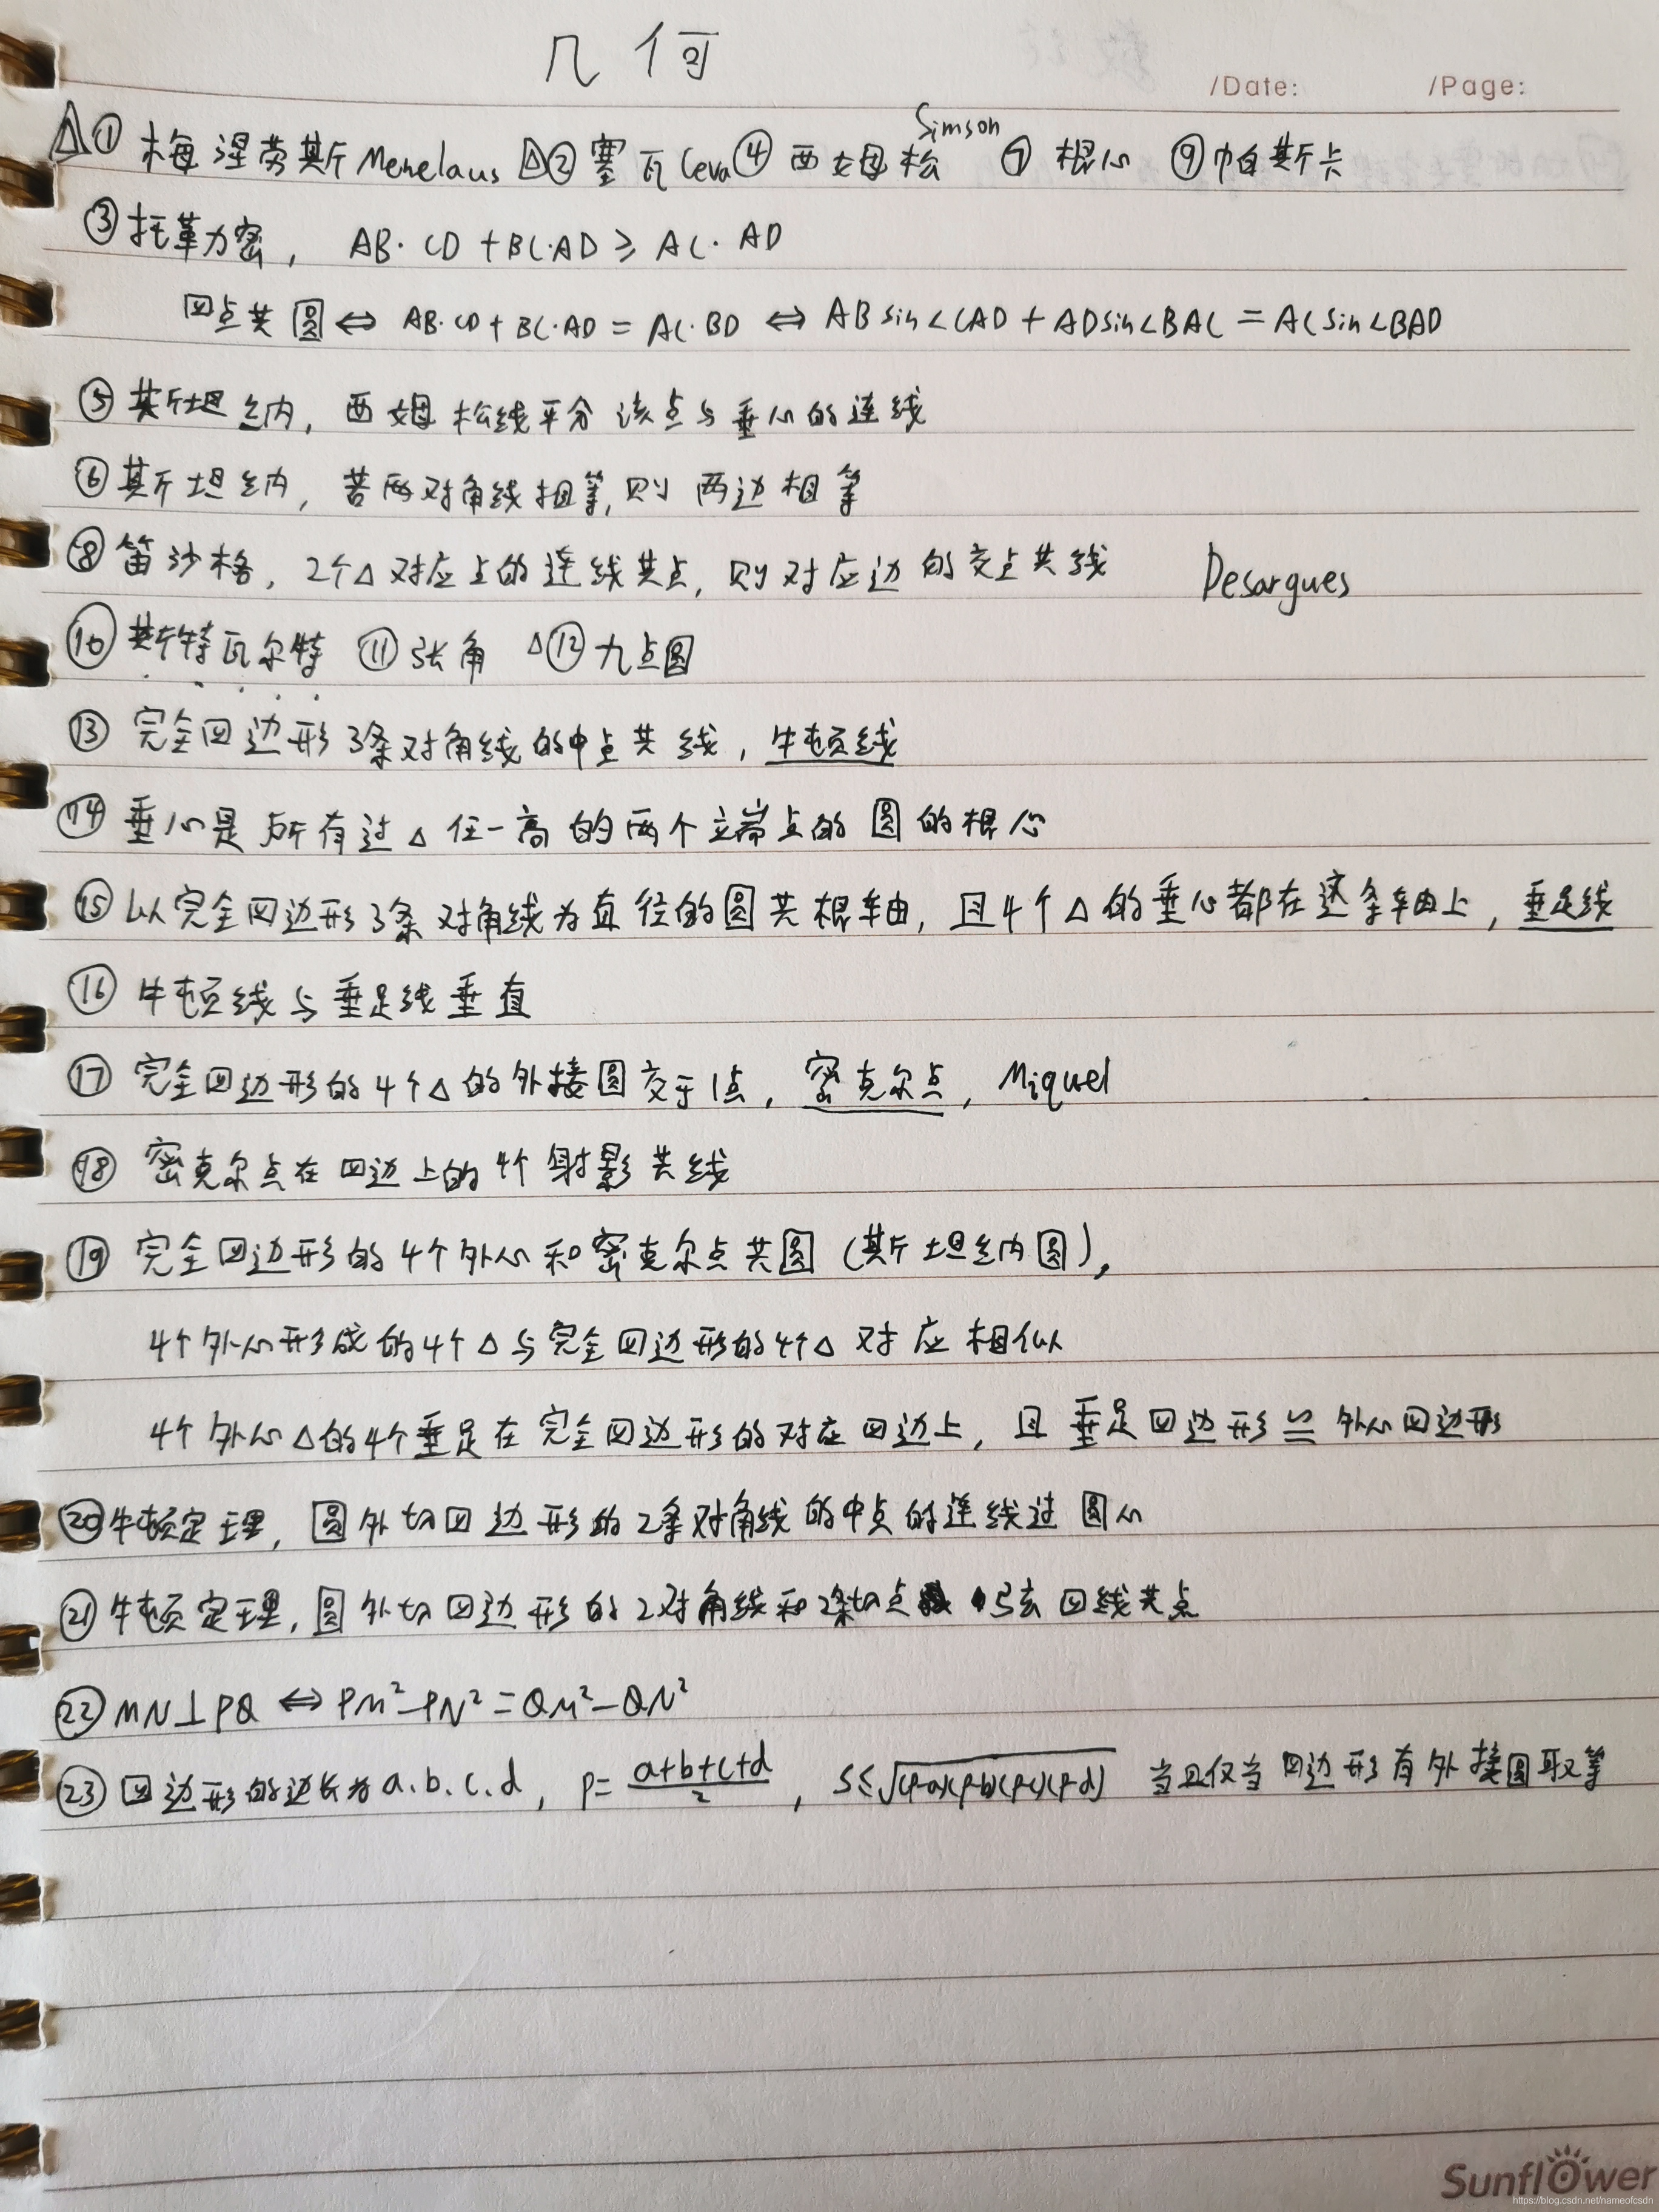 几何
/Date: /Page:
△① 梅涅劳斯Menelaus △②塞瓦Ceva④ 西姆松 Simson ⑦ 根心 ⑨帕斯卡
③托勒密, AB·CD+BC·AD≥AC·AD
四点共圆⇔ AB·CD+BC·AD=AC·BD ⇔ ABsin∠CAD+ADsin∠BAC=ACsin∠BAD
⑤斯坦纳, 西姆松线平分该点与垂心的连线
⑥斯坦纳, 若两对角线相等,则两边相等
⑧笛沙格, 2个△对应点的连线共点, 则对应边的交点共线 Desargues
⑩斯特瓦尔特 ⑪张角 △⑫九点圆
⑬ 完全四边形3条对角线的中点共线, 牛顿线
⑭ 垂心是所有过△任一高的两个端点的圆的根心
⑮以完全四边形3条对角线为直径的圆共根轴, 且4个△的垂心都在这条轴上, 垂足线
⑯ 牛顿线与垂足线垂直
⑰ 完全四边形的4个△的外接圆交于1点, 密克尔点, Miquel
⑱ 密克尔点在四边上的4个射影共线
⑲ 完全四边形的4个外心和密克尔点共圆(斯坦纳圆),
4个外心形成的4个△与完全四边形的4个△对应相似
4个外心△的4个垂足在完全四边形的对应四边上, 且垂足四边形≌外心四边形
⑳牛顿定理, 圆外切四边形的2条对角线的中点的连线过圆心
㉑牛顿定理, 圆外切四边形的2对角线和2条切点弦四线共点
㉒MN⊥PQ⇔PM²-PN²=QM²-QN²
㉓四边形的边长为a.b.c.d, p=(a+b+c+d)/2, S≤√(p-a)(p-b)(p-c)(p-d) 当且仅当四边形有外接圆取等
Sunflower
https://blog.csdn.net/nameofcsdn